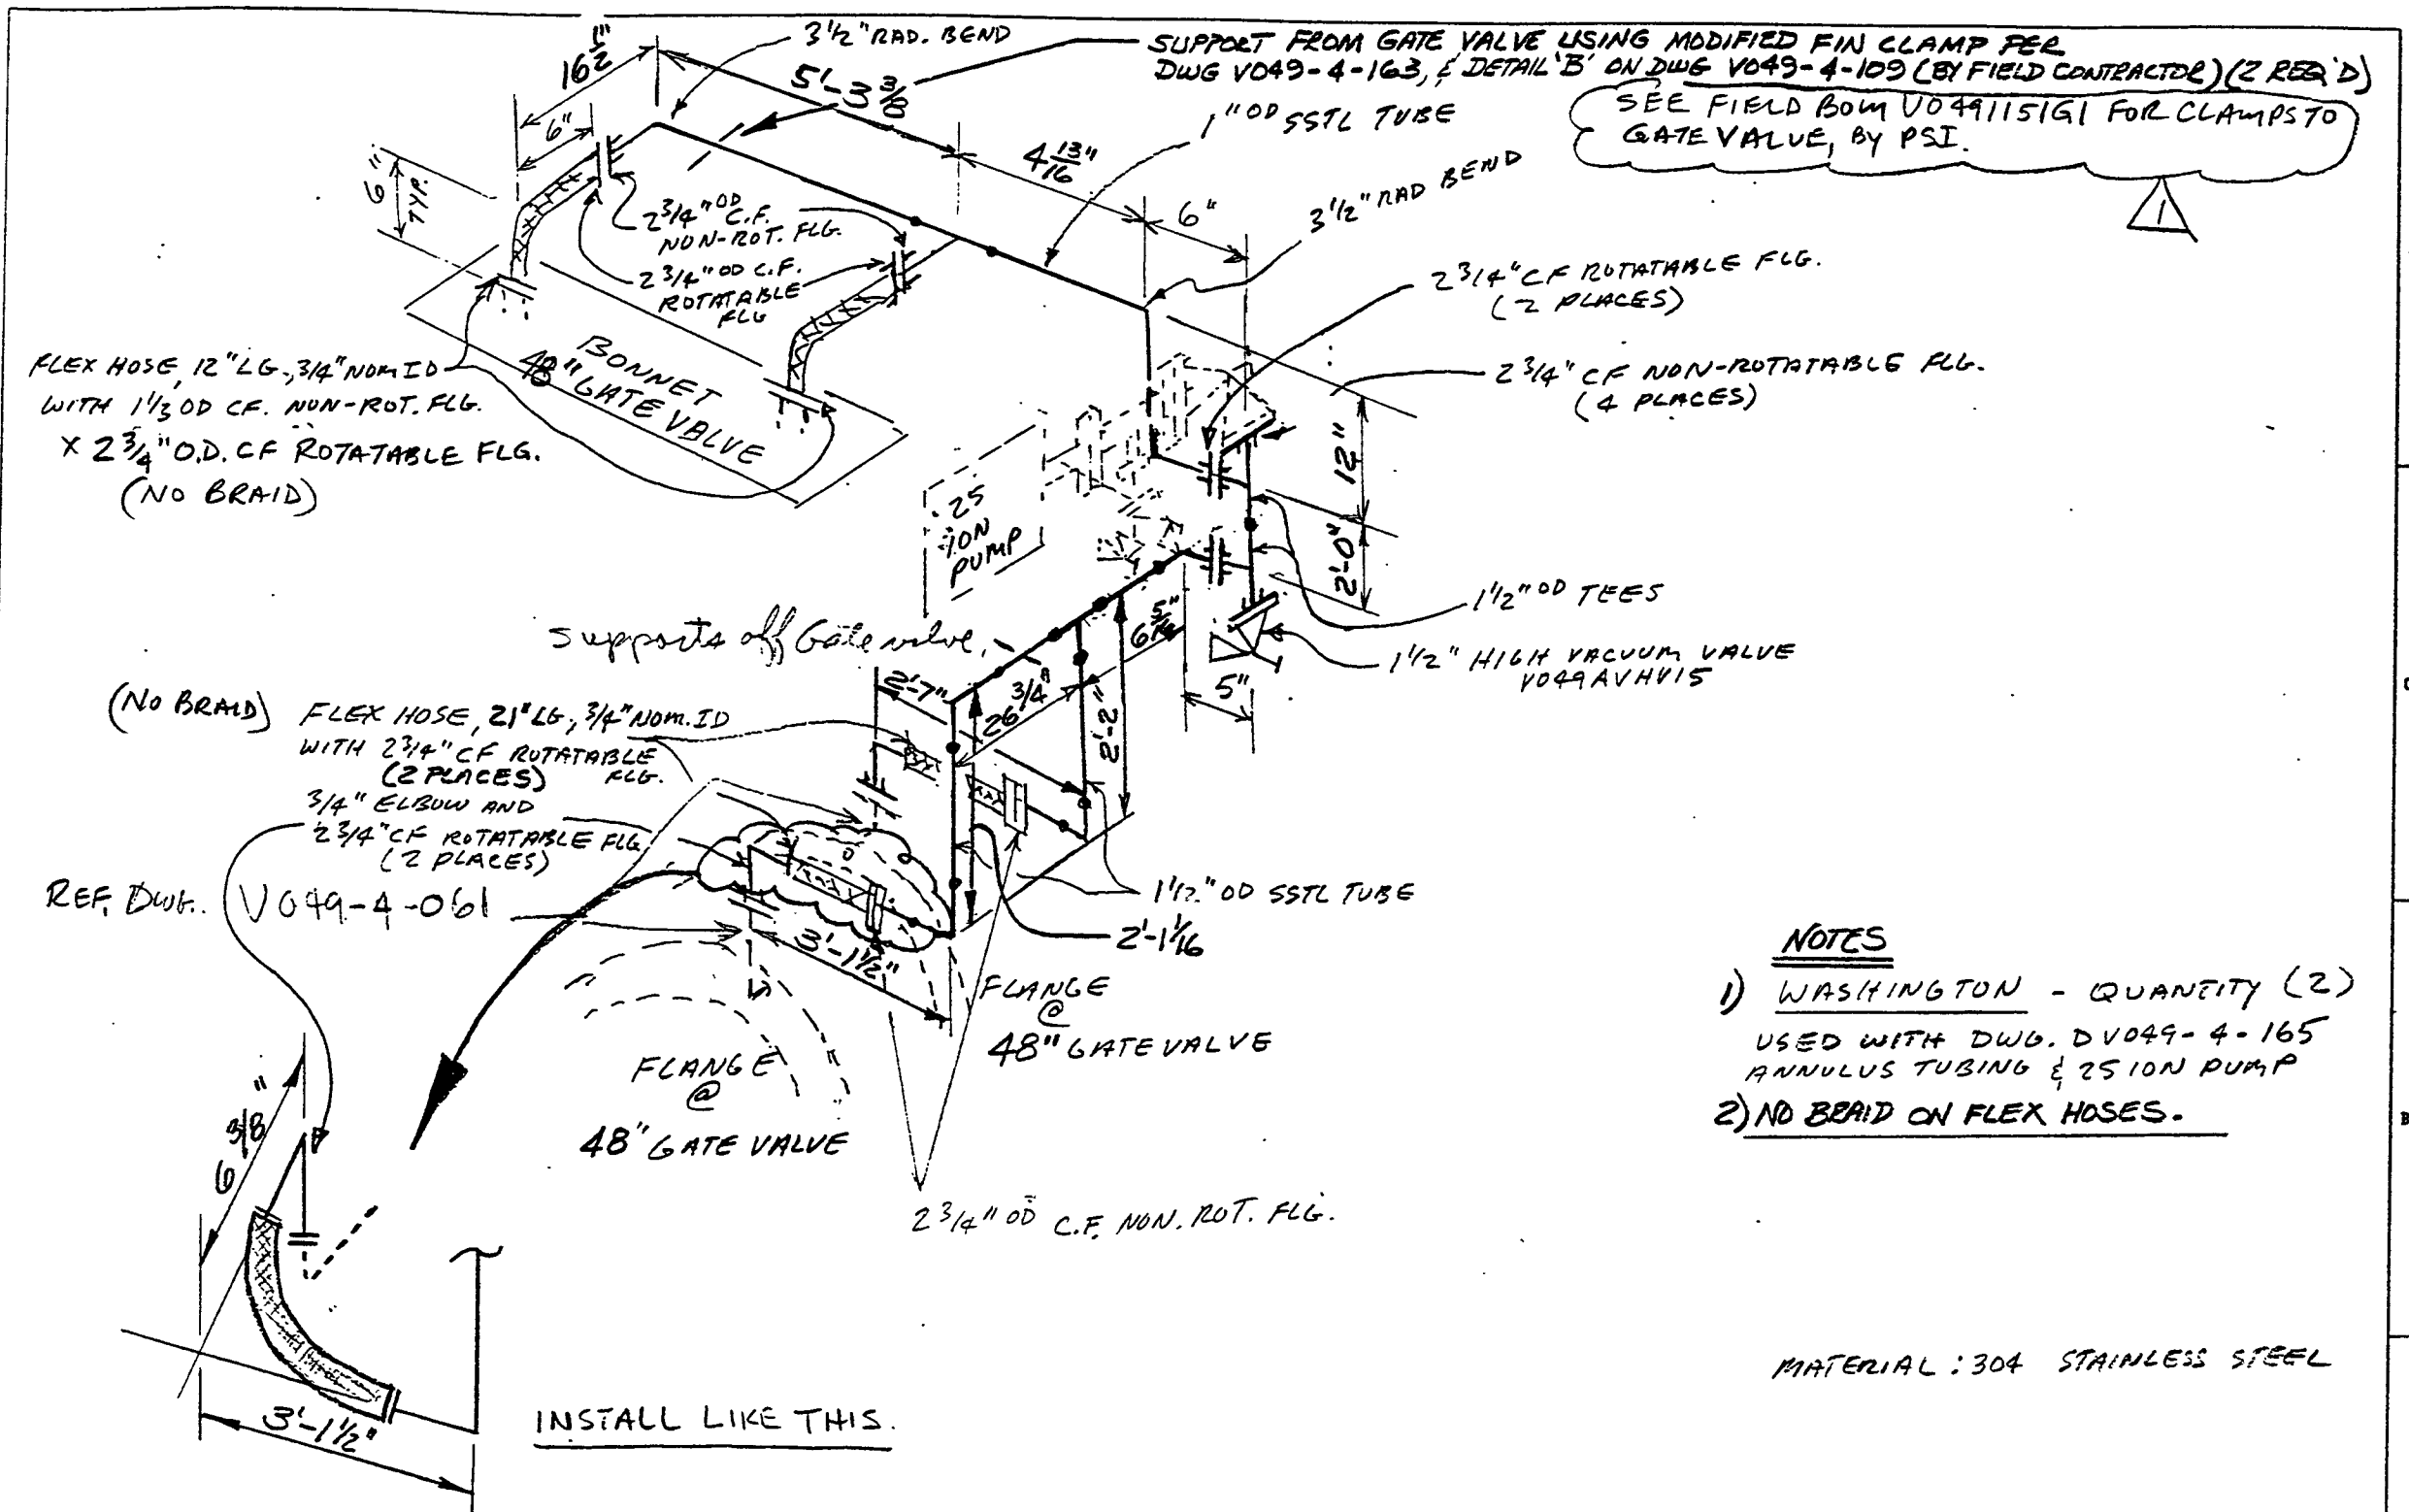 3 1/2" RAD. BEND
SUPPORT FROM GATE VALVE USING MODIFIED FIN CLAMP PER
DWG V049-4-163, & DETAIL 'B' ON DWG V049-4-109 (BY FIELD CONTRACTOR)(2 REQ'D)
SEE FIELD BOM V0491151G1 FOR CLAMPS TO
GATE VALVE, BY PSI.
1
16 1/2"
5'-3 3/8
1" OD SSTL TUBE
4 13/16"
6"
3 1/2" RAD BEND
6"
6"
TYP.
2 3/4" OD
C.F.
NON-ROT. FLG.
2 3/4" OD C.F.
ROTATABLE
FLG
2 3/4" CF ROTATABLE FLG.
(2 PLACES)
2 3/4" CF NON-ROTATABLE FLG.
(4 PLACES)
FLEX HOSE, 12" LG., 3/4" NOM ID
WITH 1 1/3 OD CF. NON-ROT. FLG.
X 2 3/4" O.D. CF ROTATABLE FLG.
(NO BRAID)
BONNET
48" GATE VALVE
25
ION
PUMP
12"
2'-0"
1 1/2" OD TEES
1 1/2" HIGH VACUUM VALVE
V049AVHV15
supports off Gate valve.
6 5/16"
5"
2'-7"
26 3/4"
2'-2"
(NO BRAID)
FLEX HOSE, 21" LG, 3/4" NOM. ID
WITH 2 3/4" CF ROTATABLE
(2 PLACES) FLG.
3/4" ELBOW AND
2 3/4" CF ROTATABLE FLG
(2 PLACES)
REF. DWG. V049-4-061
1 1/2" OD SSTL TUBE
2'-1 1/16
3'-1 1/2"
FLANGE
@
48" GATE VALVE
FLANGE
@
48" GATE VALVE
2 3/4" OD C.F. NON. ROT. FLG.
NOTES
1) WASHINGTON - QUANTITY (2)
USED WITH DWG. DV049-4-165
ANNULUS TUBING & 25 ION PUMP
2) NO BRAID ON FLEX HOSES.
6 3/8"
3'-1 1/2"
INSTALL LIKE THIS.
MATERIAL : 304 STAINLESS STEEL
B